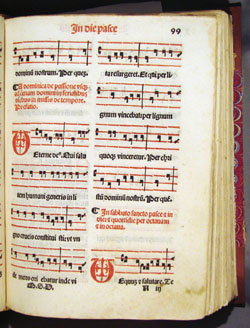 In die pasce
99
dominũ nostrum. Per quẽ
A dominica de passione vsq̃
ad cenam domini
in missis de tempore.
Prefatio.
Eterne deꝰ. Qui salu
tem humani generis in li
gno crucis constitui sti: vt vn
de mors ori ebatur inde vi
ta resurgeret. Et qui per li
gnum vincebat: per lignum
quoqꝫ vinceretur. Per chri
stũ dominũ nostrũ. Per quẽ
In sabbato sancto pasce t in
die t quottidie per octauam
t in octaua.
Equũ t salutare. Te
N iij